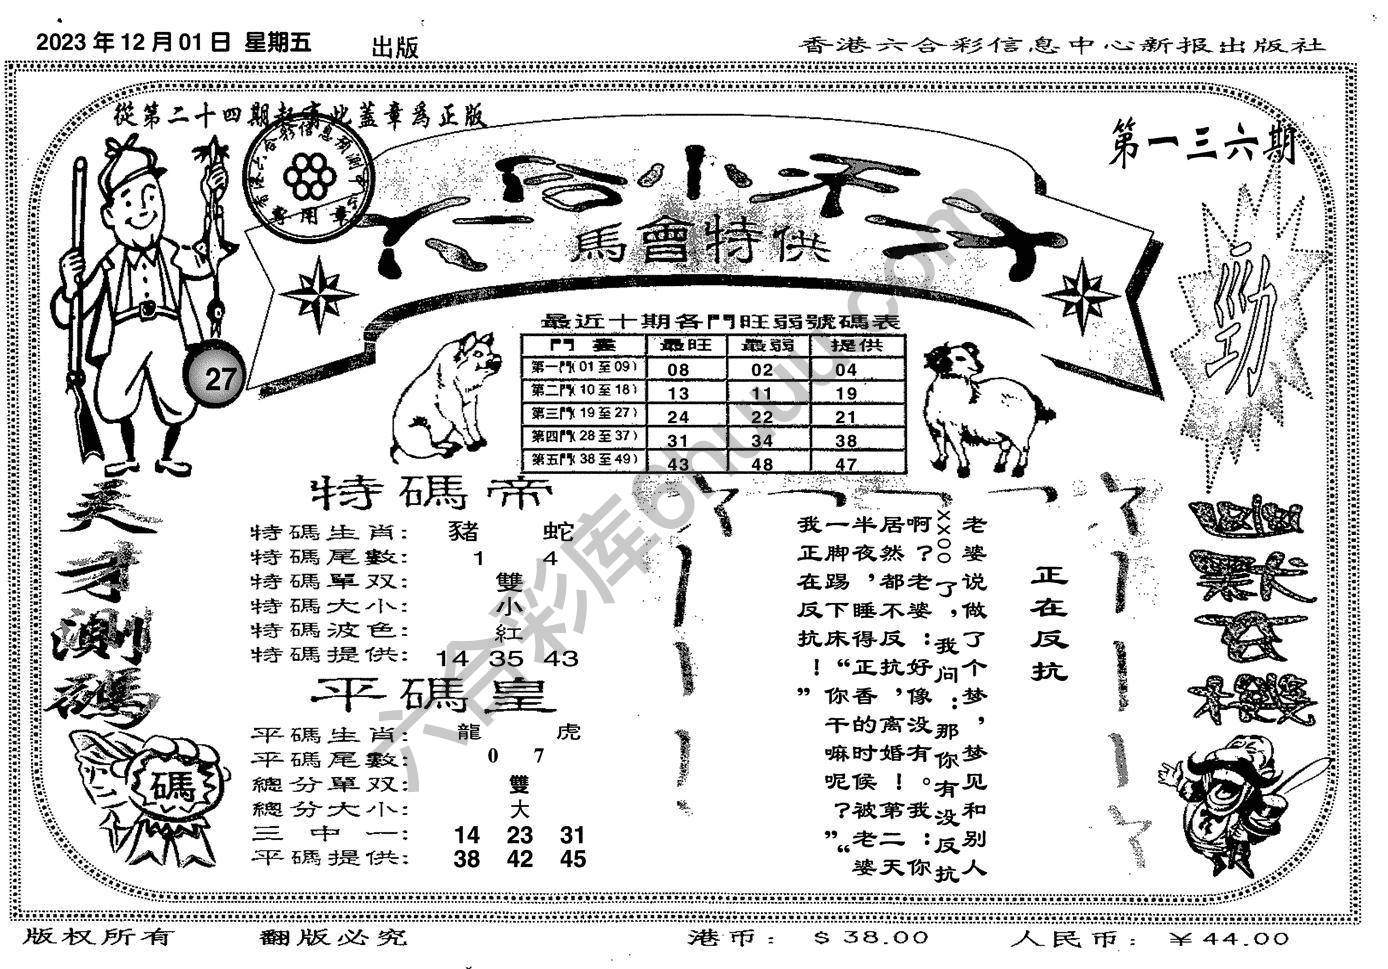 2023 年 12 月 01 日 星期五 出版
香港六合彩信息中心新报出版社
從第二十四期起寄此蓋章爲正版
第一三六期
馬會特供
勁
27
最近十期各門旺弱號碼表
門 最旺 最弱 提供
第一門(01至09) 08 02 04
第二門(10至18) 13 11 19
第三門(19至27) 24 22 21
第四門(28至37) 31 34 38
第五門(38至49) 43 48 47
天才測碼
特碼帝
特碼生肖: 豬 蛇
特碼尾數: 1 4
特碼單双: 雙
特碼大小: 小
特碼波色: 紅
特碼提供: 14 35 43
平碼皇
平碼生肖: 龍 虎
平碼尾數: 0 7
總分單双: 雙
總分大小: 大
三中一: 14 23 31
平碼提供: 38 42 45
碼
正在反抗
老婆说做了个梦，梦见和别人
XXOO了，我问：那你有没反抗
啊？老婆：好像没有。我：你
居然都不反抗，离婚！第二天
半夜，睡得正香的时候被老婆
一脚踢下床“你干嘛呢？”“
我正在反抗！”
版权所有 翻版必究 港币: $ 38.00 人民币: ￥44.00
六合彩库6huu.com